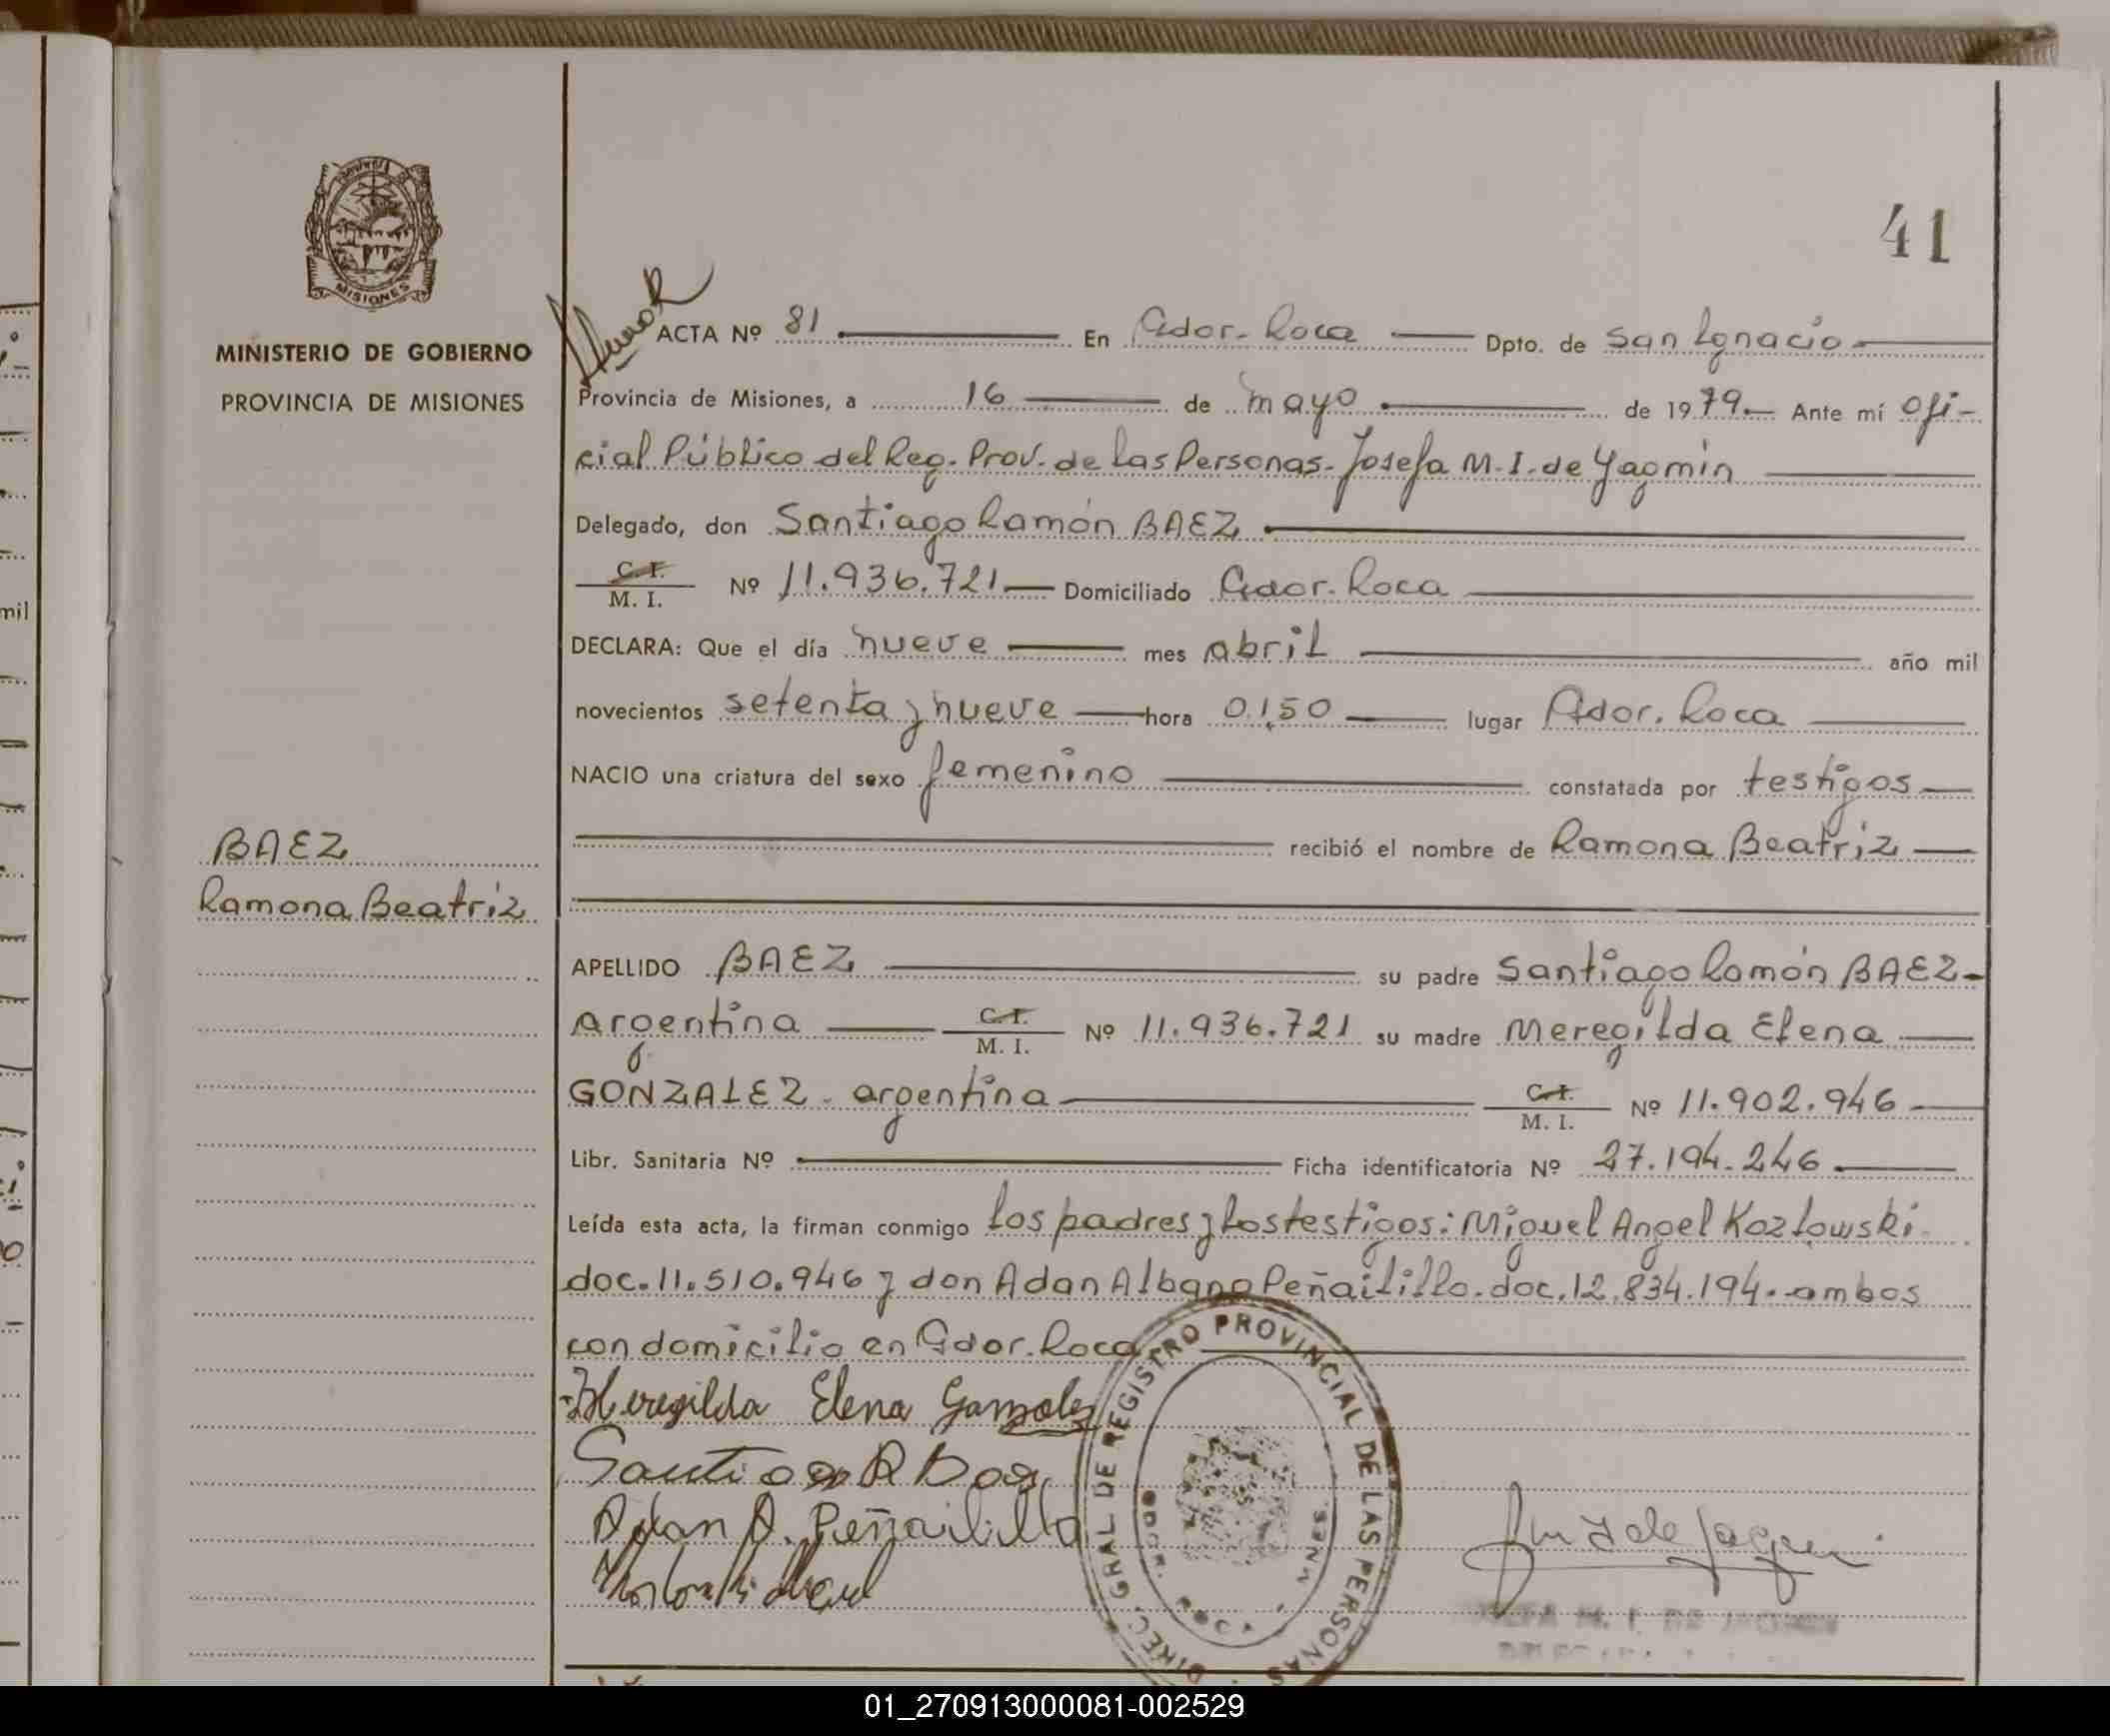 41
MISIONES
MINISTERIO DE GOBIERNO
PROVINCIA DE MISIONES
BAEZ
Ramona Beatriz
ACTA Nº 81 En Gdor. Roca Dpto. de San Ignacio
Provincia de Misiones, a 16 de mayo de 1979.- Ante mí Ofi-
cial Público del Reg. Prov. de las Personas. Josefa M. I. de Yagmin
Delegado, don Santiago Ramón BAEZ
C. I. / M. I. Nº 11.936.721 Domiciliado Gdor. Roca
DECLARA: Que el día nueve mes abril año mil
novecientos setenta y nueve hora 01,50 lugar Gdor. Roca
NACIO una criatura del sexo femenino constatada por testigos
recibió el nombre de Ramona Beatriz
APELLIDO BAEZ su padre Santiago Ramón BAEZ-
argentina C. I. / M. I. Nº 11.936.721 su madre Meregilda Elena
GONZALEZ - argentina C. I. / M. I. Nº 11.902.946
Libr. Sanitaria Nº Ficha identificatoria Nº 27.194.246
Leída esta acta, la firman conmigo los padres y los testigos: Miguel Angel Kozlowski
doc. 11.510.946 y don Adan Albano Peñailillo. doc. 12.834.194. ambos
con domicilio en Gdor. Roca
Meregilda Elena Gonzalez
Santiago R Baez
Adan A. Peñailillo
DIREC. GRAL DE REGISTRO PROVINCIAL DE LAS PERSONAS
M. I. DE
01_270913000081-002529